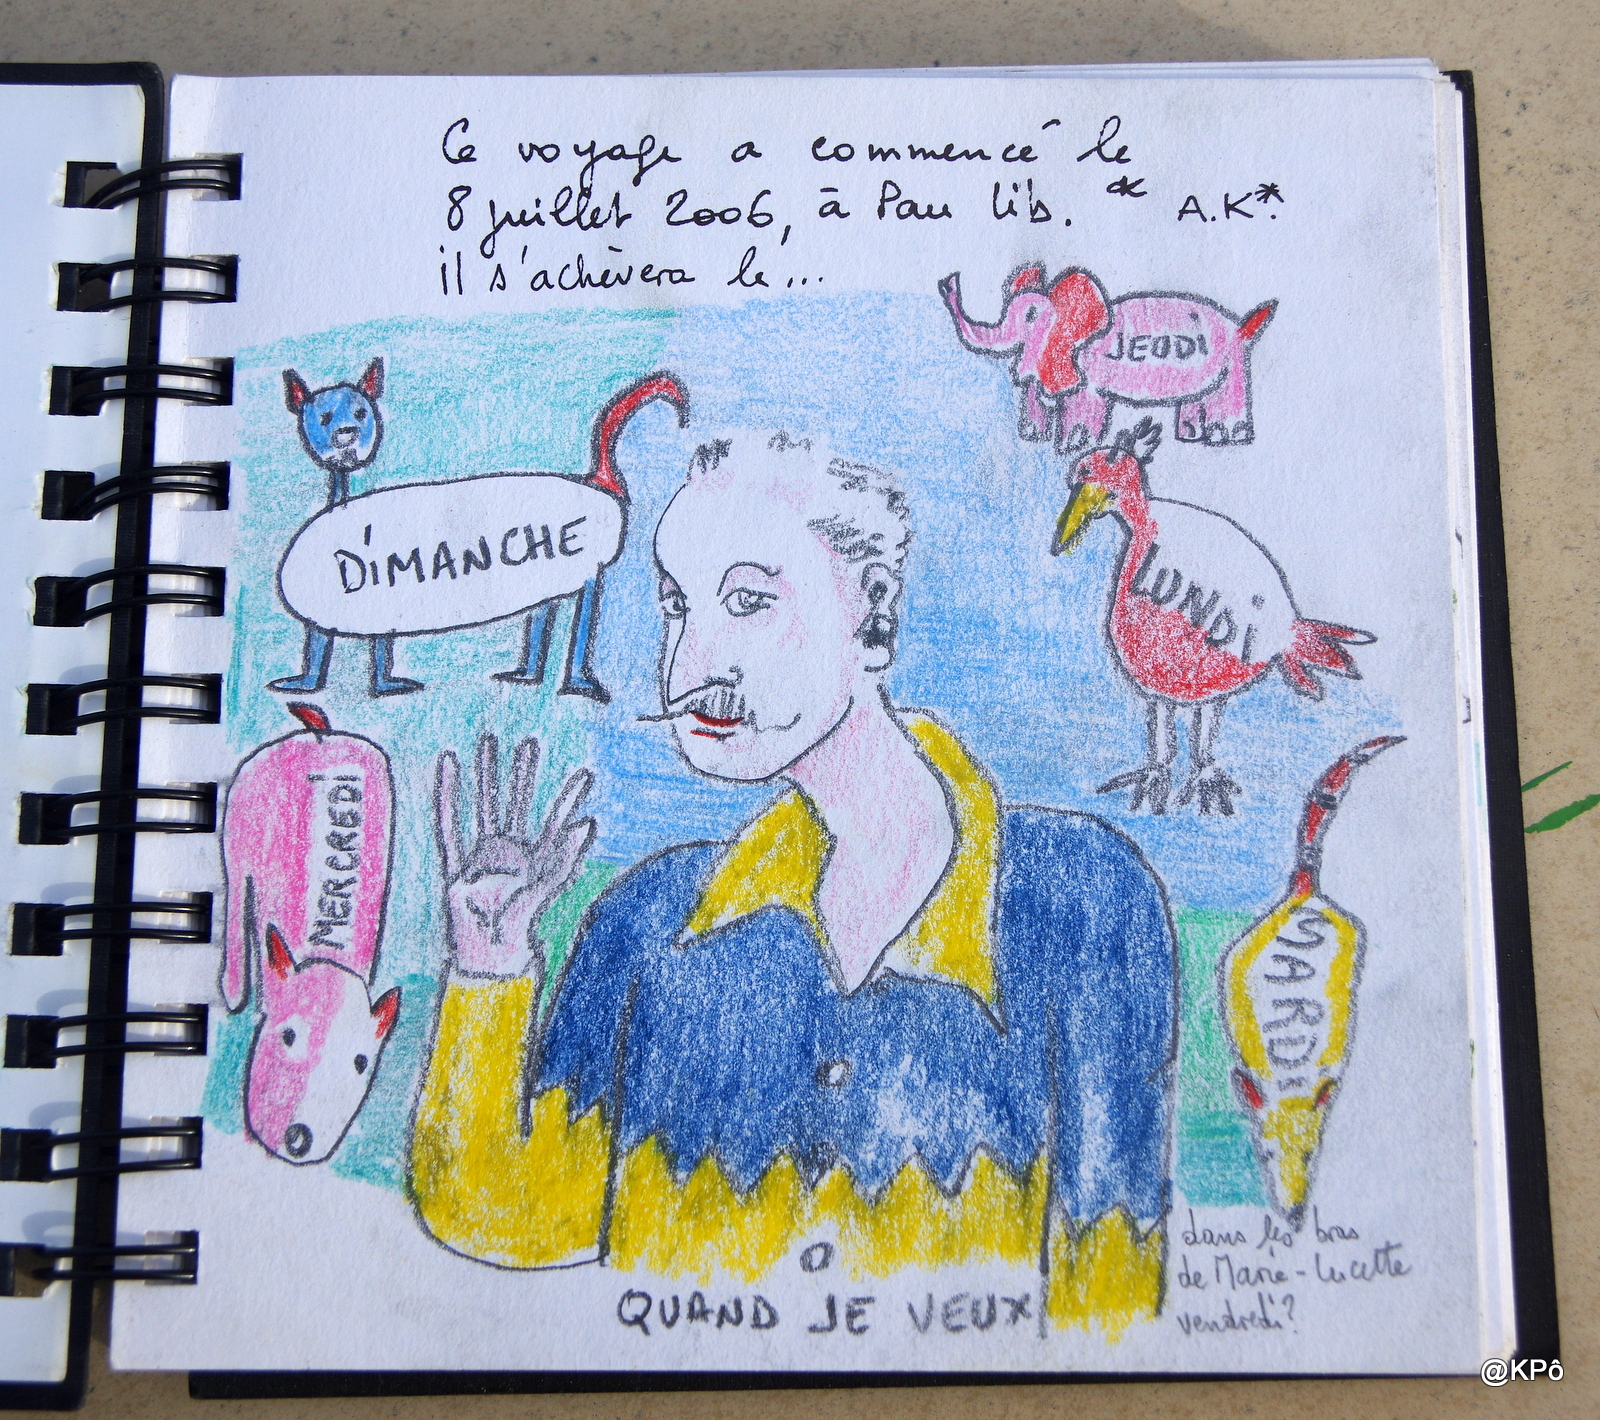 Ce voyage a commencé le
8 juillet 2006, à Pau lib. * A.K*.
il s'achèvera le...
JEUDI
DIMANCHE
LUNDI
MERCREDI
MARDI
dans les bras
de Marie-Lucette
vendredi?
QUAND JE VEUX
@KPô